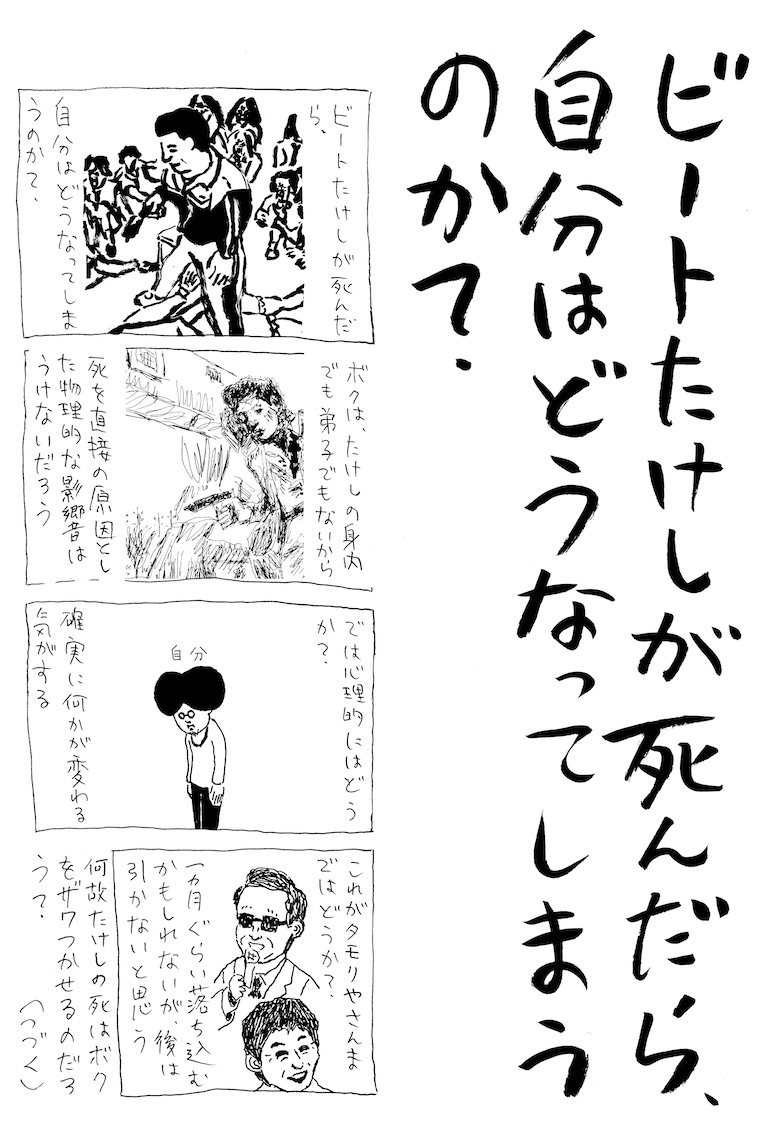 ビートたけしが死んだら、
自分はどうなってしまう
のか?.
ビートたけしが死んだ
ら、
自分はどうなってしま
うのか?、
ボクは、たけしの身内
でも弟子でもないから
死を直接の原因とし
た物理的な影響は
うけないだろう
では心理的にはどう
か?.
自分
確実に何かが変わる
気がする
これがタモリやさんま
ではどうか?.
一ヵ月ぐらい落ち込む
かもしれないが、後は
引かないと思う
何故たけしの死はボク
をザワつかせるのだろ
う?.
(つづく)